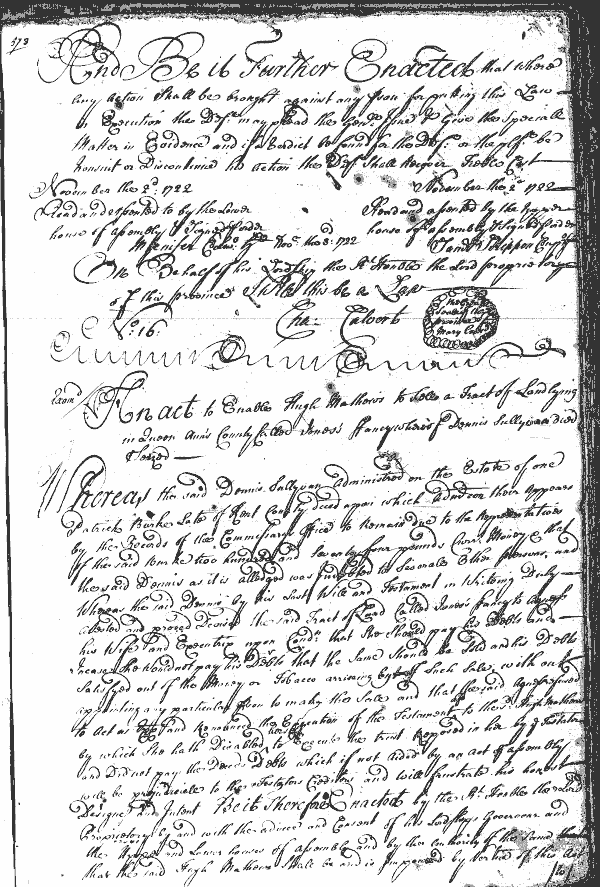 373
And Be it Further Enacted that where
any action Shall be brought against any for putting this Law
in Execution the Deft. may plead the Genl. Issue & Give the Speciall
Matter in Evidence and if a Verdict be found for the Deft. or the pltf. be
Nonsuit or Discontinued his action the Deft Shall Recover Treble Cost
November the 2d. 1722 November the 2d. 1722
Read and assented to by the Lower Read and assented by the upper
house of assembly house of assembly
1722
On Behalf of his Lordship the Rt. Honble the Lord proprietary
of this province I will this be a Law
Cha: Calvert
No: 16
An act to Enable Hugh Mathews to Sell a Tract of Land lying
in Queen Ann's County Called Jones's Fancy whereof Dennis Sullyvan died
Seized
Whereas the said Dennis Sullyvan administred on the Estate of one
Patrick Burke Late of Kent County deced upon which admcon there appears
by the Records of the Commissarys Office to Remain due to the Representatives
of the said Burke two hundred and twenty four pounds Curt. Money & that
the said Dennis as it is alledged was Indebted to Severall Other persons, and
Whereas the said Dennis by his Last Will and Testament in Writing Duly
attested and proved Devised the said Tract of Land Called Jones's fancy to
his Wife and Executrix upon Condn. that She Should pay his Debts and
Incase She Would not pay his Debts that the Same Should be Sold and his Debts
Satisfyed out of the Money or Tobacco arriving by Such Sale, with out
appointing any particular person to make the Sale and that
to act as and Renounced the Execution of the Testament to the sd. Hugh Mathews
by which She hath Disabled to Execute the trust Reposed in her by ye Testator
and Did not pay the Deced. Debts which if not aided by an act of assembly
will be prejudiciale to the Testators Creditors and will frustrate his honest
Designe and Intent Be it Therefore Enacted by the Rt. Honble the Lord
Proprietary by and with the advice and Consent of his Lordships Governour and
the Upper and Lower houses of assembly and by the authority of the Same
that the said Hugh Mathews Shall be and is Impowered by Vertue of this Act
to